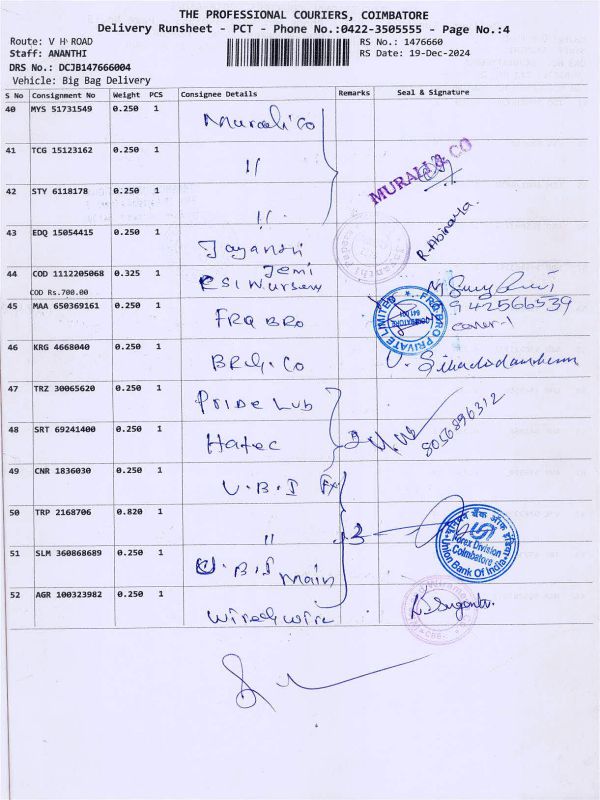 THE PROFESSIONAL COURIERS, COIMBATORE
Delivery Runsheet - PCT - Phone No.:0422-3505555 - Page No.:4
Route: V H ROAD
RS No.: 1476660
Staff: ANANTHI
RS Date: 19-Dec-2024
DRS No.: DCJB147666004
Vehicle: Big Bag Delivery
S No Consignment No Weight PCS Consignee Details Remarks Seal & Signature
40 MYS 51731549 0.250 1 Murali Co
41 TCG 15123162 0.250 1 "
MURALI & CO
42 STY 6118178 0.250 1 "
R. Abinaya
43 EDQ 15054415 0.250 1 Jayanthi
44 COD 1112205068 0.325 1 Jemi
COD Rs.700.00
CSI Nursery
942566539
45 MAA 650369161 0.250 1 FRQ BRO
FRQ BRO PRIVATE LIMITED
COIMBATORE
641 001
46 KRG 4668040 0.250 1 BRG. Co
47 TRZ 30065620 0.250 1 Pride Lub
48 SRT 69241400 0.250 1 Hatec
8056896312
49 CNR 1836030 0.250 1 U.B.I Fx
50 TRP 2168706 0.820 1 " 3
यूनियन बैंक ऑफ़ इंडिया
Forex Division
Coimbatore
Union Bank Of India
51 SLM 360868689 0.250 1 U.B.I Main
52 AGR 100323982 0.250 1 Wirechwire